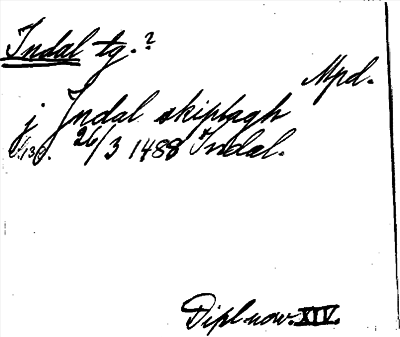 Indal tg.?
Mpd.
j Indal skiplagh
s. 130. 26/3 1488 Indal.
Dipl. norv. XIV.